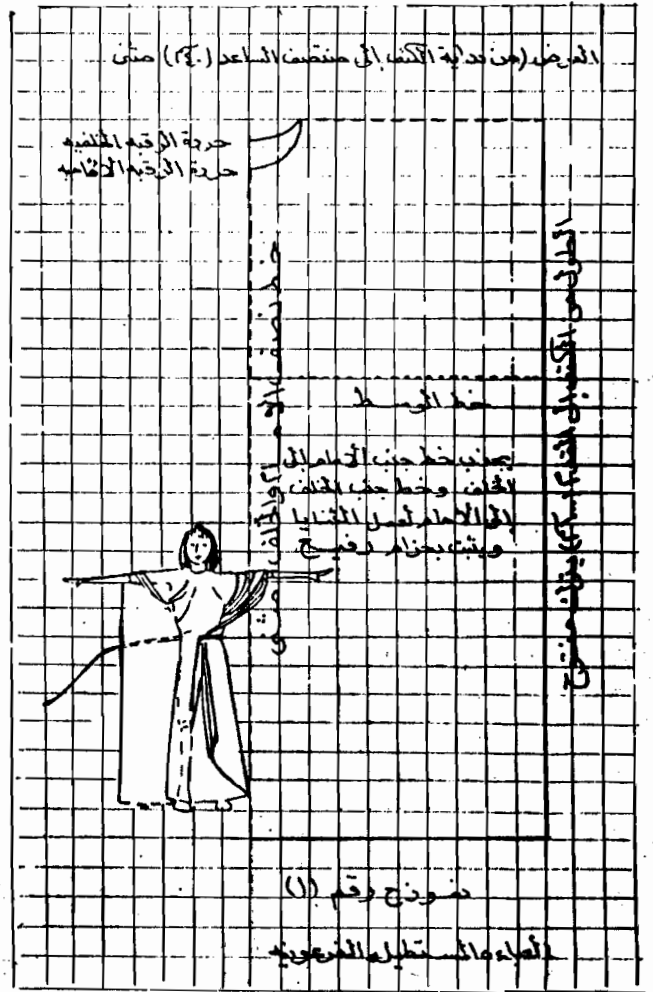 العرض (من بداية الكتف إلى منتصف الساعد (٢٤٠) مثنى
حردة الرقبة الخلفيه
حردة الرقبة الأماميه
خط نصف الأمام والخلف مثنى
الطول من الكتف إلى القدم يترك مفتوح
خط الوسط
يجذب خط جنب الأمام إلى
الخلف وخط جنب الخلف
إلى الأمام لعمل الثنايا
ويثبت بحزام رفيع
نموذج رقم (١)
العباءه المستطيله الفرعونيه